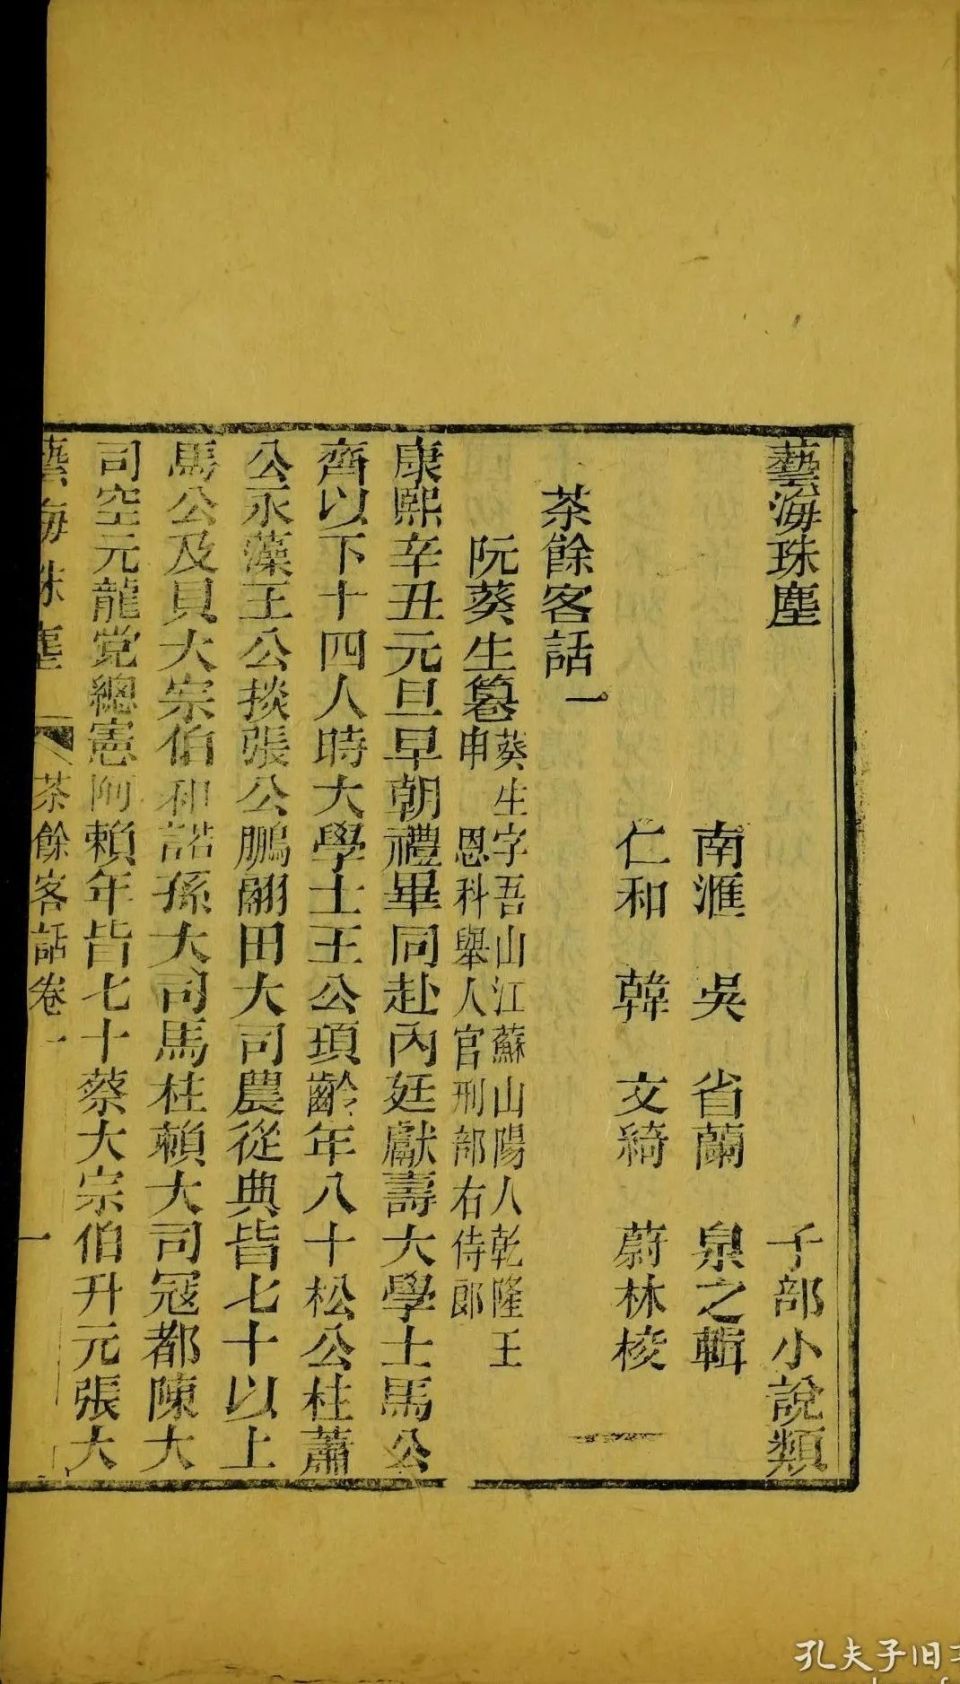 藝海珠塵 子部小說類
南滙 吳省蘭 泉之輯
仁和 韓文綺 蔚林校
茶餘客話一
阮葵生篹 葵生字吾山江蘇山陽人乾隆壬
申 恩科舉人官刑部右侍郎
康熙辛丑元旦早朝禮畢同赴內廷獻壽大學士馬公
齊以下十四人時大學士王公頊齡年八十松公柱蕭
公永藻王公掞張公鵬翮田大司農從典皆七十以上
馬公及貝大宗伯和諾孫大司馬柱賴大司寇都陳大
司空元龍党總憲阿賴年皆七十蔡大宗伯升元張大
藝海珠塵 茶餘客話卷一 一
孔夫子旧